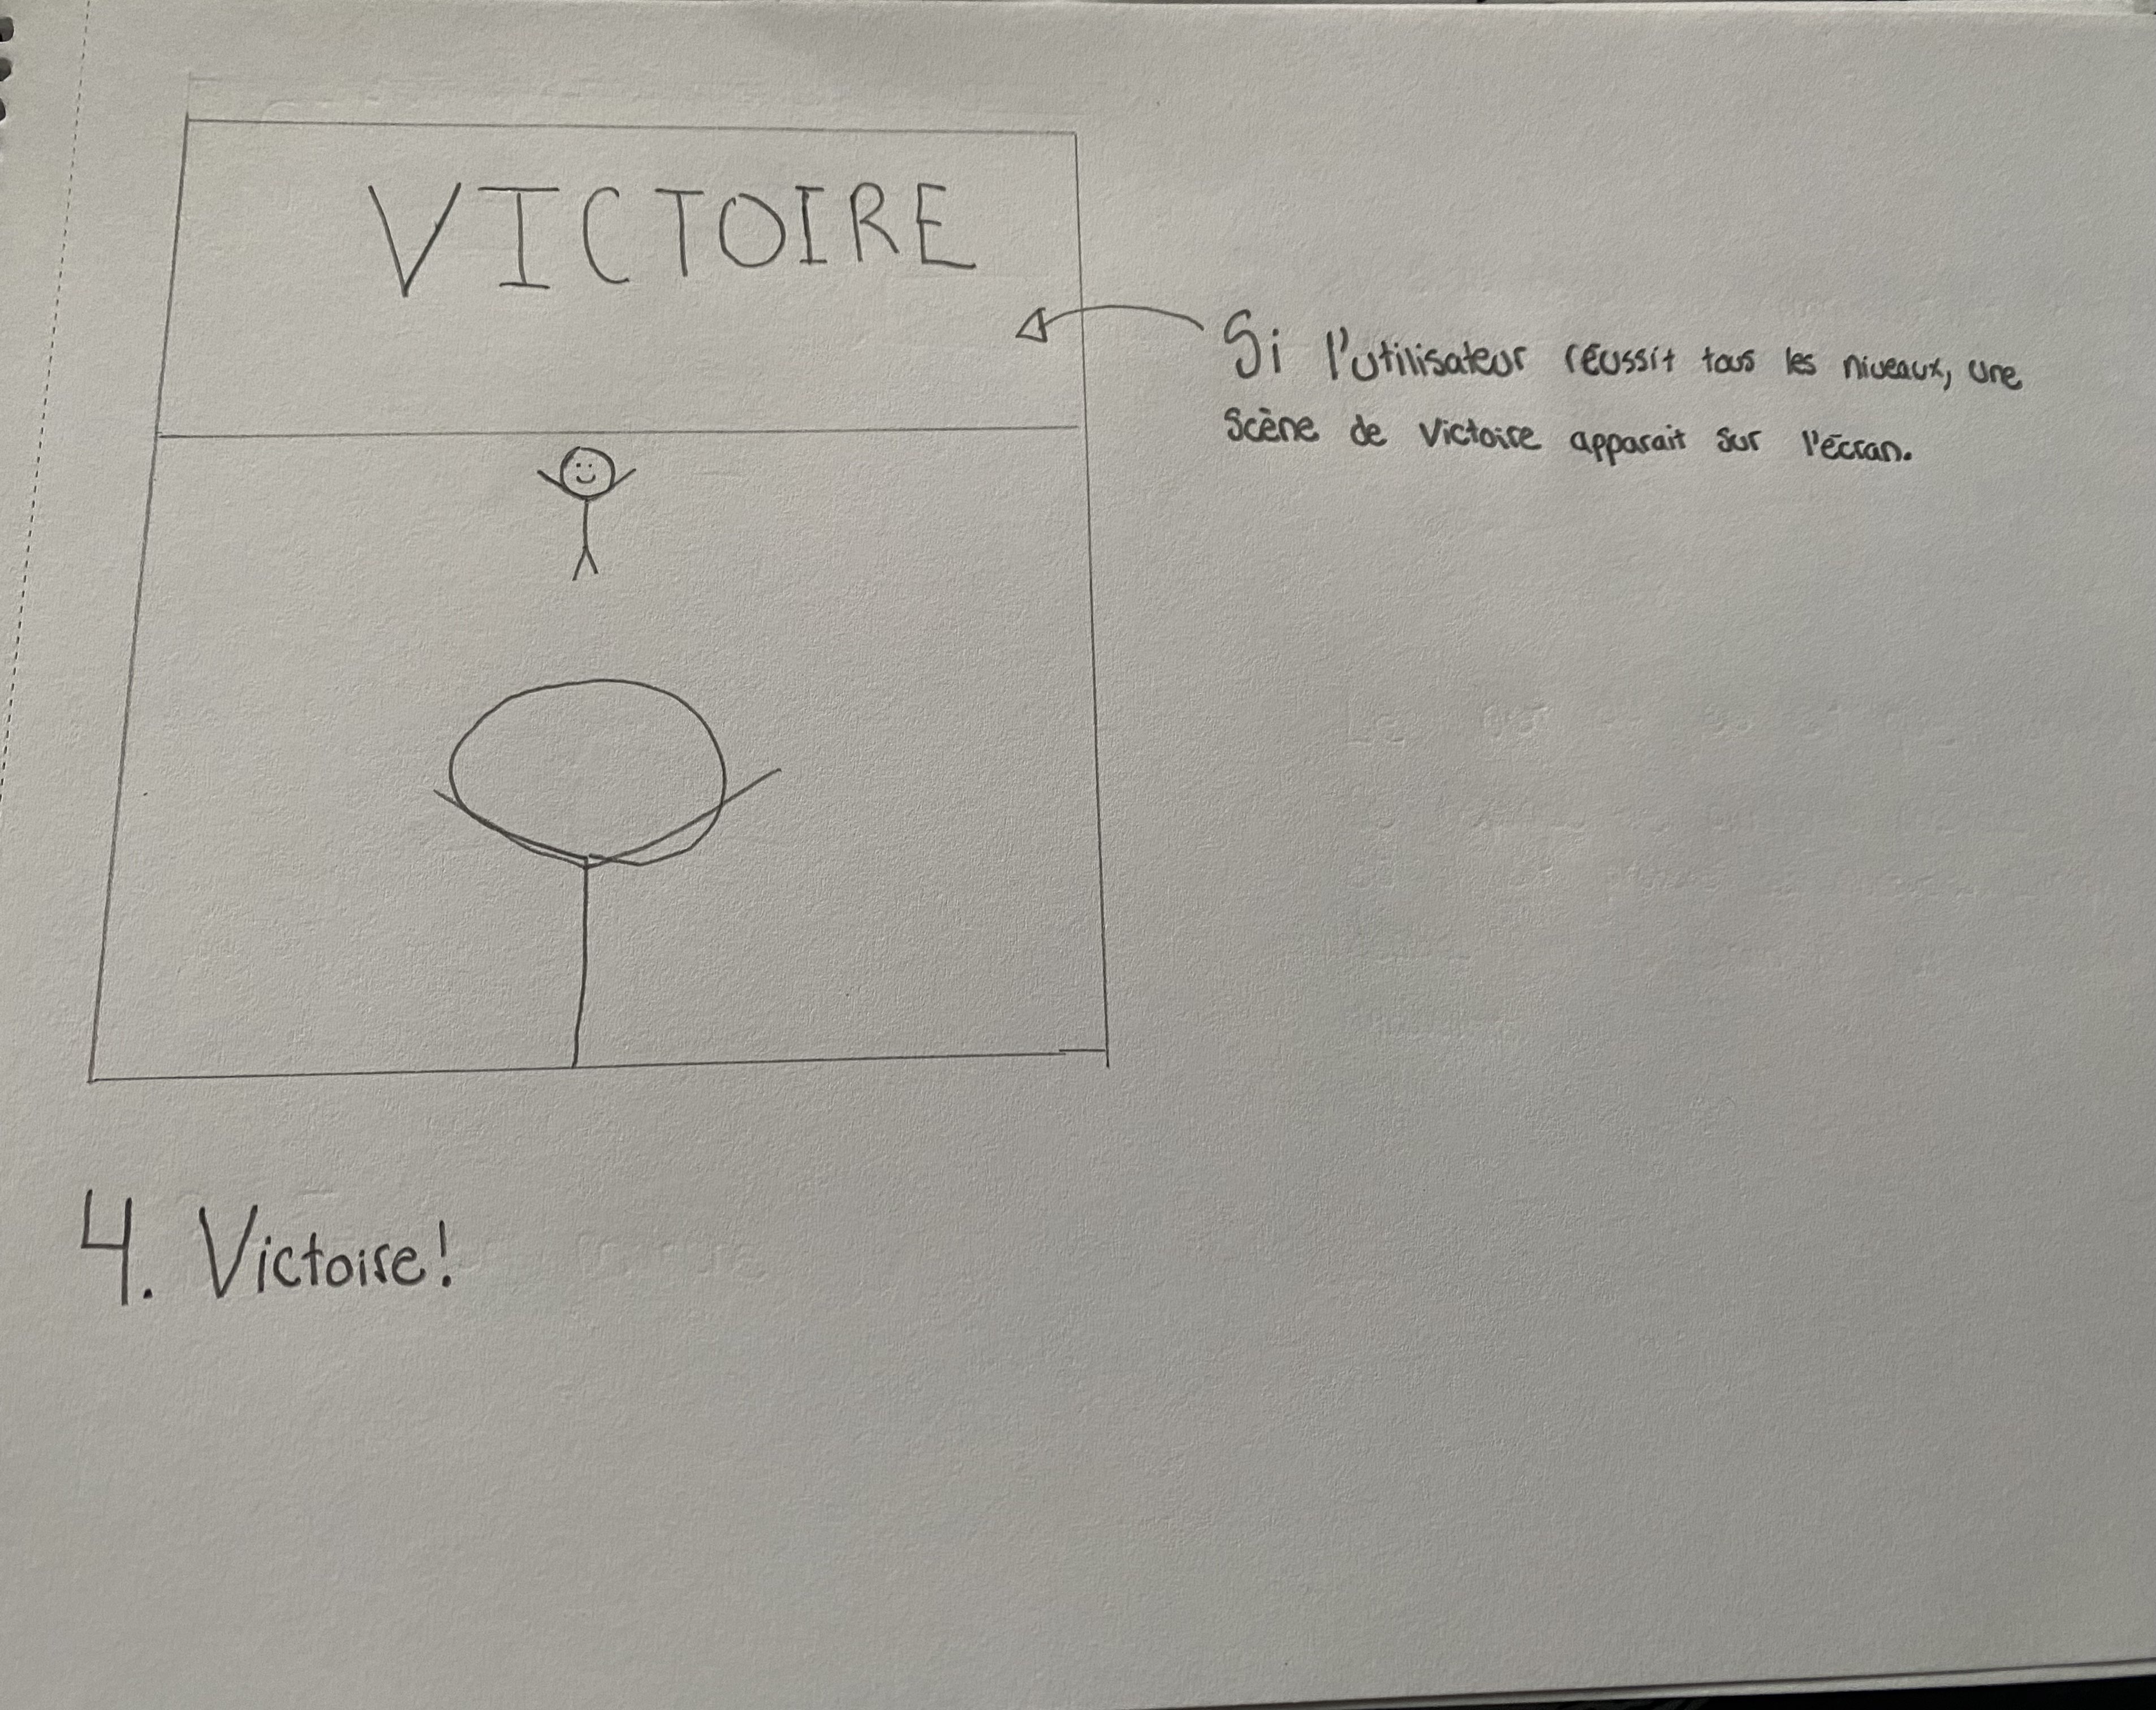 VICTOIRE
Si l'utilisateur réussit tous les niveaux, une
scène de victoire apparait sur l'écran.
4. Victoire!